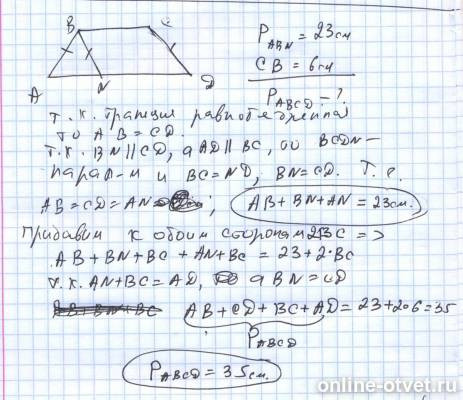 B C
A N D
P ABN = 23 см
CB = 6 см
P ABCD - ?
т.к. трапеция равнобедренная
то AB = CD.
т.к. BN || CD, а AD || BC, то BCDN -
парал-м и BC = ND, BN = CD. Т.е.
AB = CD = AN ; AB + BN + AN = 23 см.
Прибавим к обоим сторонам 2BC =>
AB + BN + BC + AN + BC = 23 + 2·BC
т.к. AN + BC = AD, а BN = CD
AB + CD + BC + AD = 23 + 2·6 = 35
P ABCD
P ABCD = 35 см.
online-otvet.ru